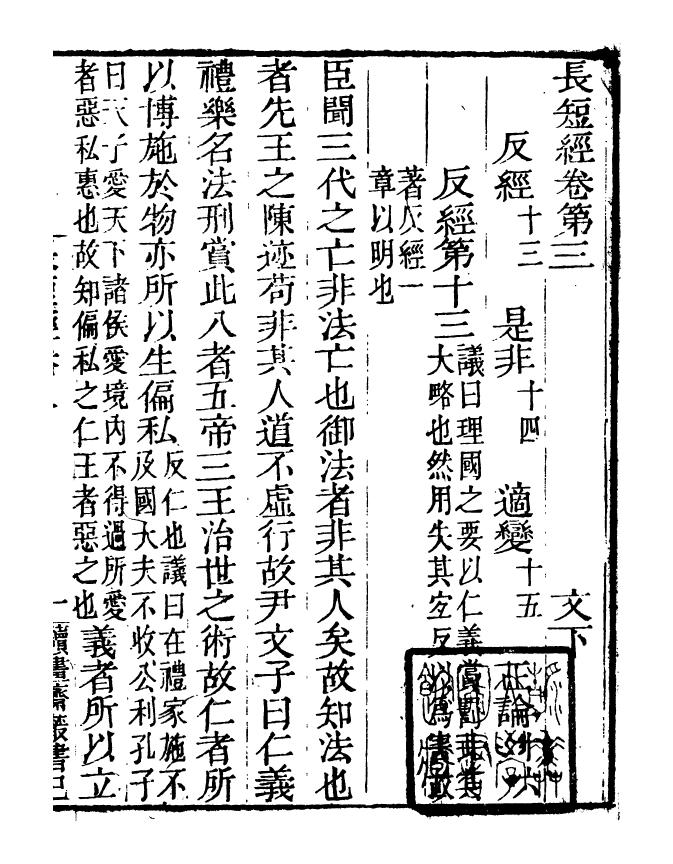 長短經卷第三 文下
反經十三 是非十四 適變十五 正論
反經第十三 議曰理國之要以仁義賞罰此其
大略也然用失其宜反以爲害故
著反經一
章以明也
臣聞三代之亡非法亡也御法者非其人矣故知法也
者先王之陳迹苟非其人道不虛行故尹文子曰仁義
禮樂名法刑賞此八者五帝三王治世之術故仁者所
以博施於物亦所以生偏私 反仁也議曰在禮家施不
及國大夫不收公利孔子
曰天子愛天下諸侯愛境內不得過所愛
者惡私惠也故知偏私之仁王者惡之也 義者所以立
一 讀畫齋叢書己